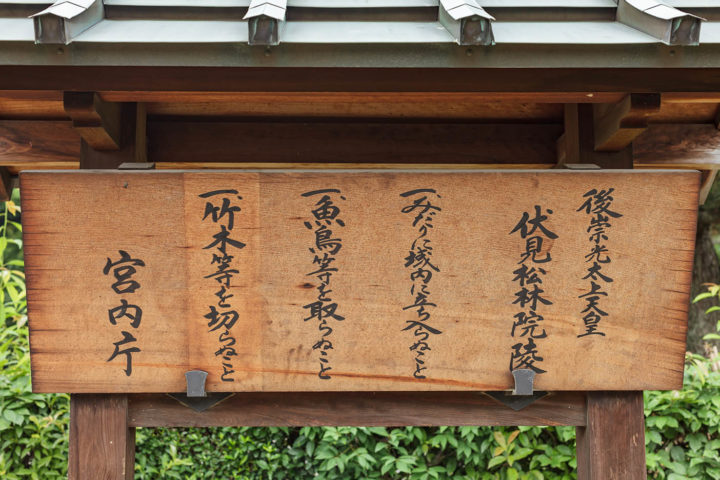 後崇光太上天皇
伏見松林院陵
一、みだりに域内に立ち入らぬこと
一、魚鳥等を取らぬこと
一、竹木等を切らぬこと
宮内庁